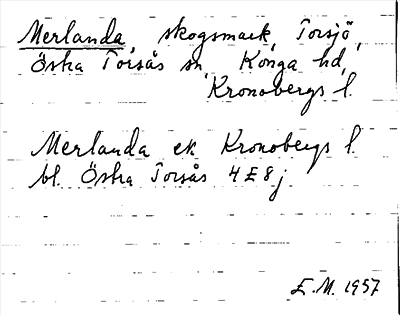 Merlanda, skogsmark, Torsjö,
Östra Torsås sn, Konga hd,
Kronobergs l.
Merlanda ek. Kronobergs l.
bl. Östra Torsås 4E8j
E.M. 1957